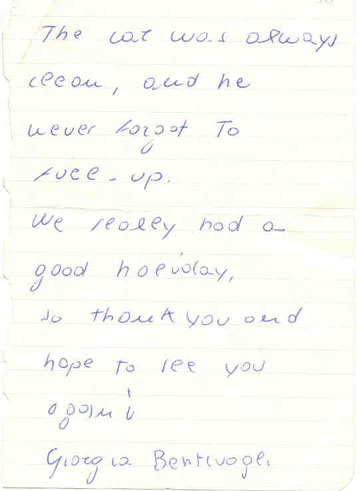 The car was always
clean, and he
never forgot To
fuel-up.
We really had a
good holiday,
so thank you and
hope to see you
again!
Giorgia Bentivogli